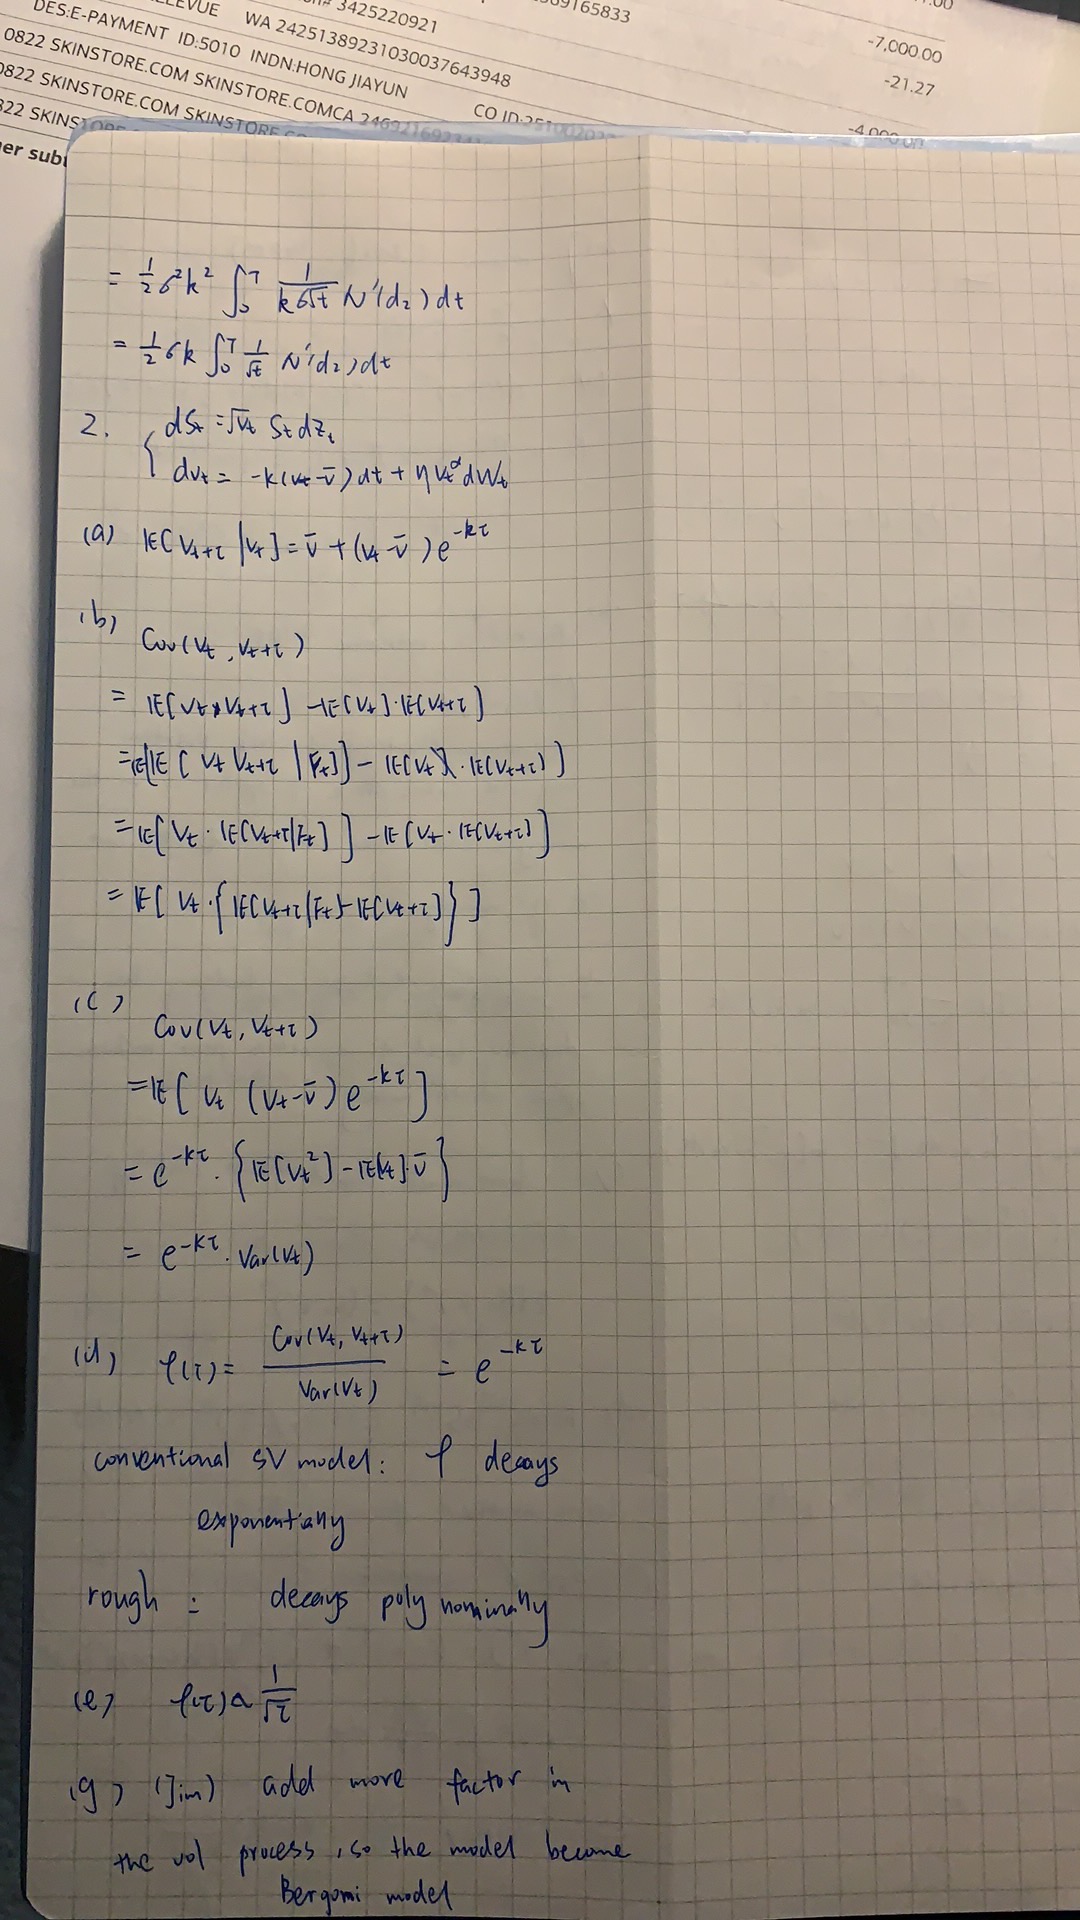 3425220921
-7,000.00
WA 24251389231030037643948
-21.27
DES:E-PAYMENT ID:5010 INDN:HONG JIAYUN
0822 SKINSTORE.COM SKINSTORE.COMCA
-4,000.00
0822 SKINSTORE.COM SKINSTORE
= 1/2 σ²k² ∫₀ᵀ 1/(kσ√t) N'(d₂) dt
= 1/2 σk ∫₀ᵀ 1/√t N'(d₂) dt
2. { dSt = √Vt St dZt
dVt = -k(Vt - v̄) dt + η Vt^α dWt
(a) 𝔼[Vt+τ |Vt] = v̄ + (Vt - v̄) e^{-kτ}
(b)
Cov(Vt, Vt+τ)
= 𝔼[Vt * Vt+τ] - 𝔼[Vt]·𝔼[Vt+τ]
= 𝔼[𝔼[Vt Vt+τ | Ft]] - 𝔼[Vt]·𝔼[Vt+τ]]
= 𝔼[Vt · 𝔼[Vt+τ|Ft]] - 𝔼[Vt · 𝔼[Vt+τ]]
= 𝔼[Vt · {𝔼[Vt+τ|Ft] - 𝔼[Vt+τ]}]
(c)
Cov(Vt, Vt+τ)
= 𝔼[Vt (Vt - v̄) e^{-kτ}]
= e^{-kτ} · {𝔼[Vt²] - 𝔼[Vt]·v̄}
= e^{-kτ} · Var(Vt)
(d) ρ(τ) = Cov(Vt, Vt+τ) / Var(Vt) = e^{-kτ}
conventional SV model: ρ decays
exponentially
rough : decays poly nominally
(e) ρ(τ) ∝ 1/√τ
(g) (Jim) add more factor in
the vol process, so the model become
Bergomi model